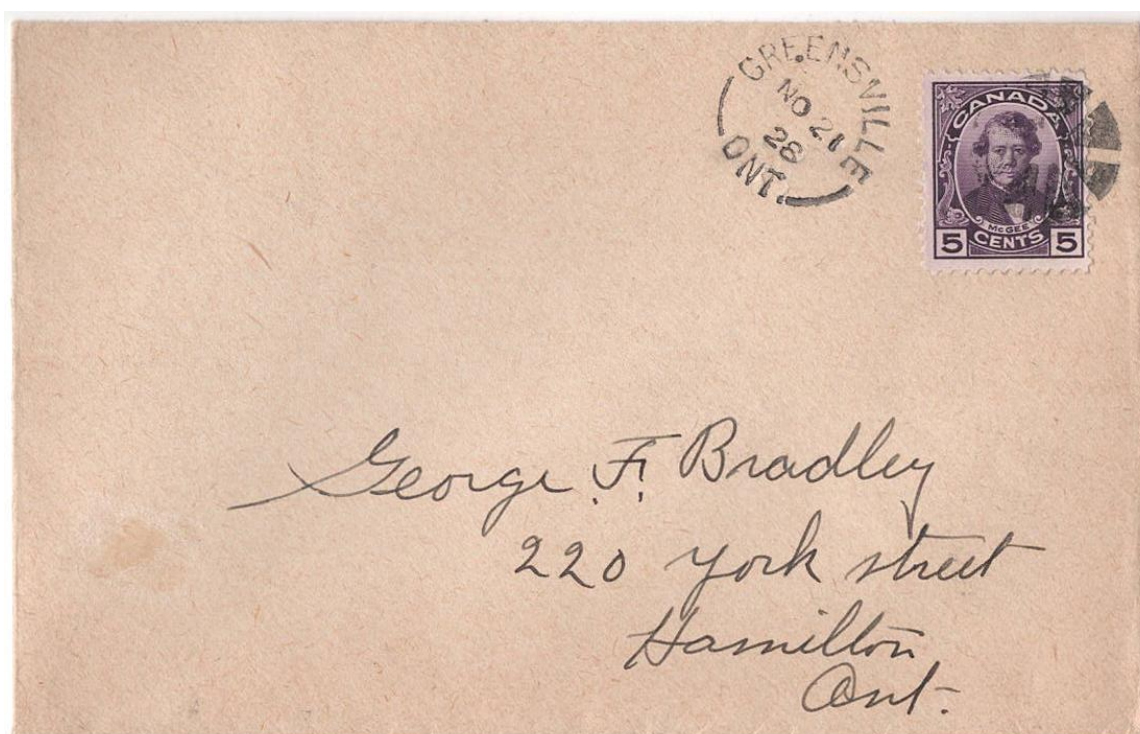 GREENSVILLE
NO 21
28
ONT.
CANADA
McGEE
5 CENTS 5
George F. Bradley
220 York street
Hamilton
Ont.